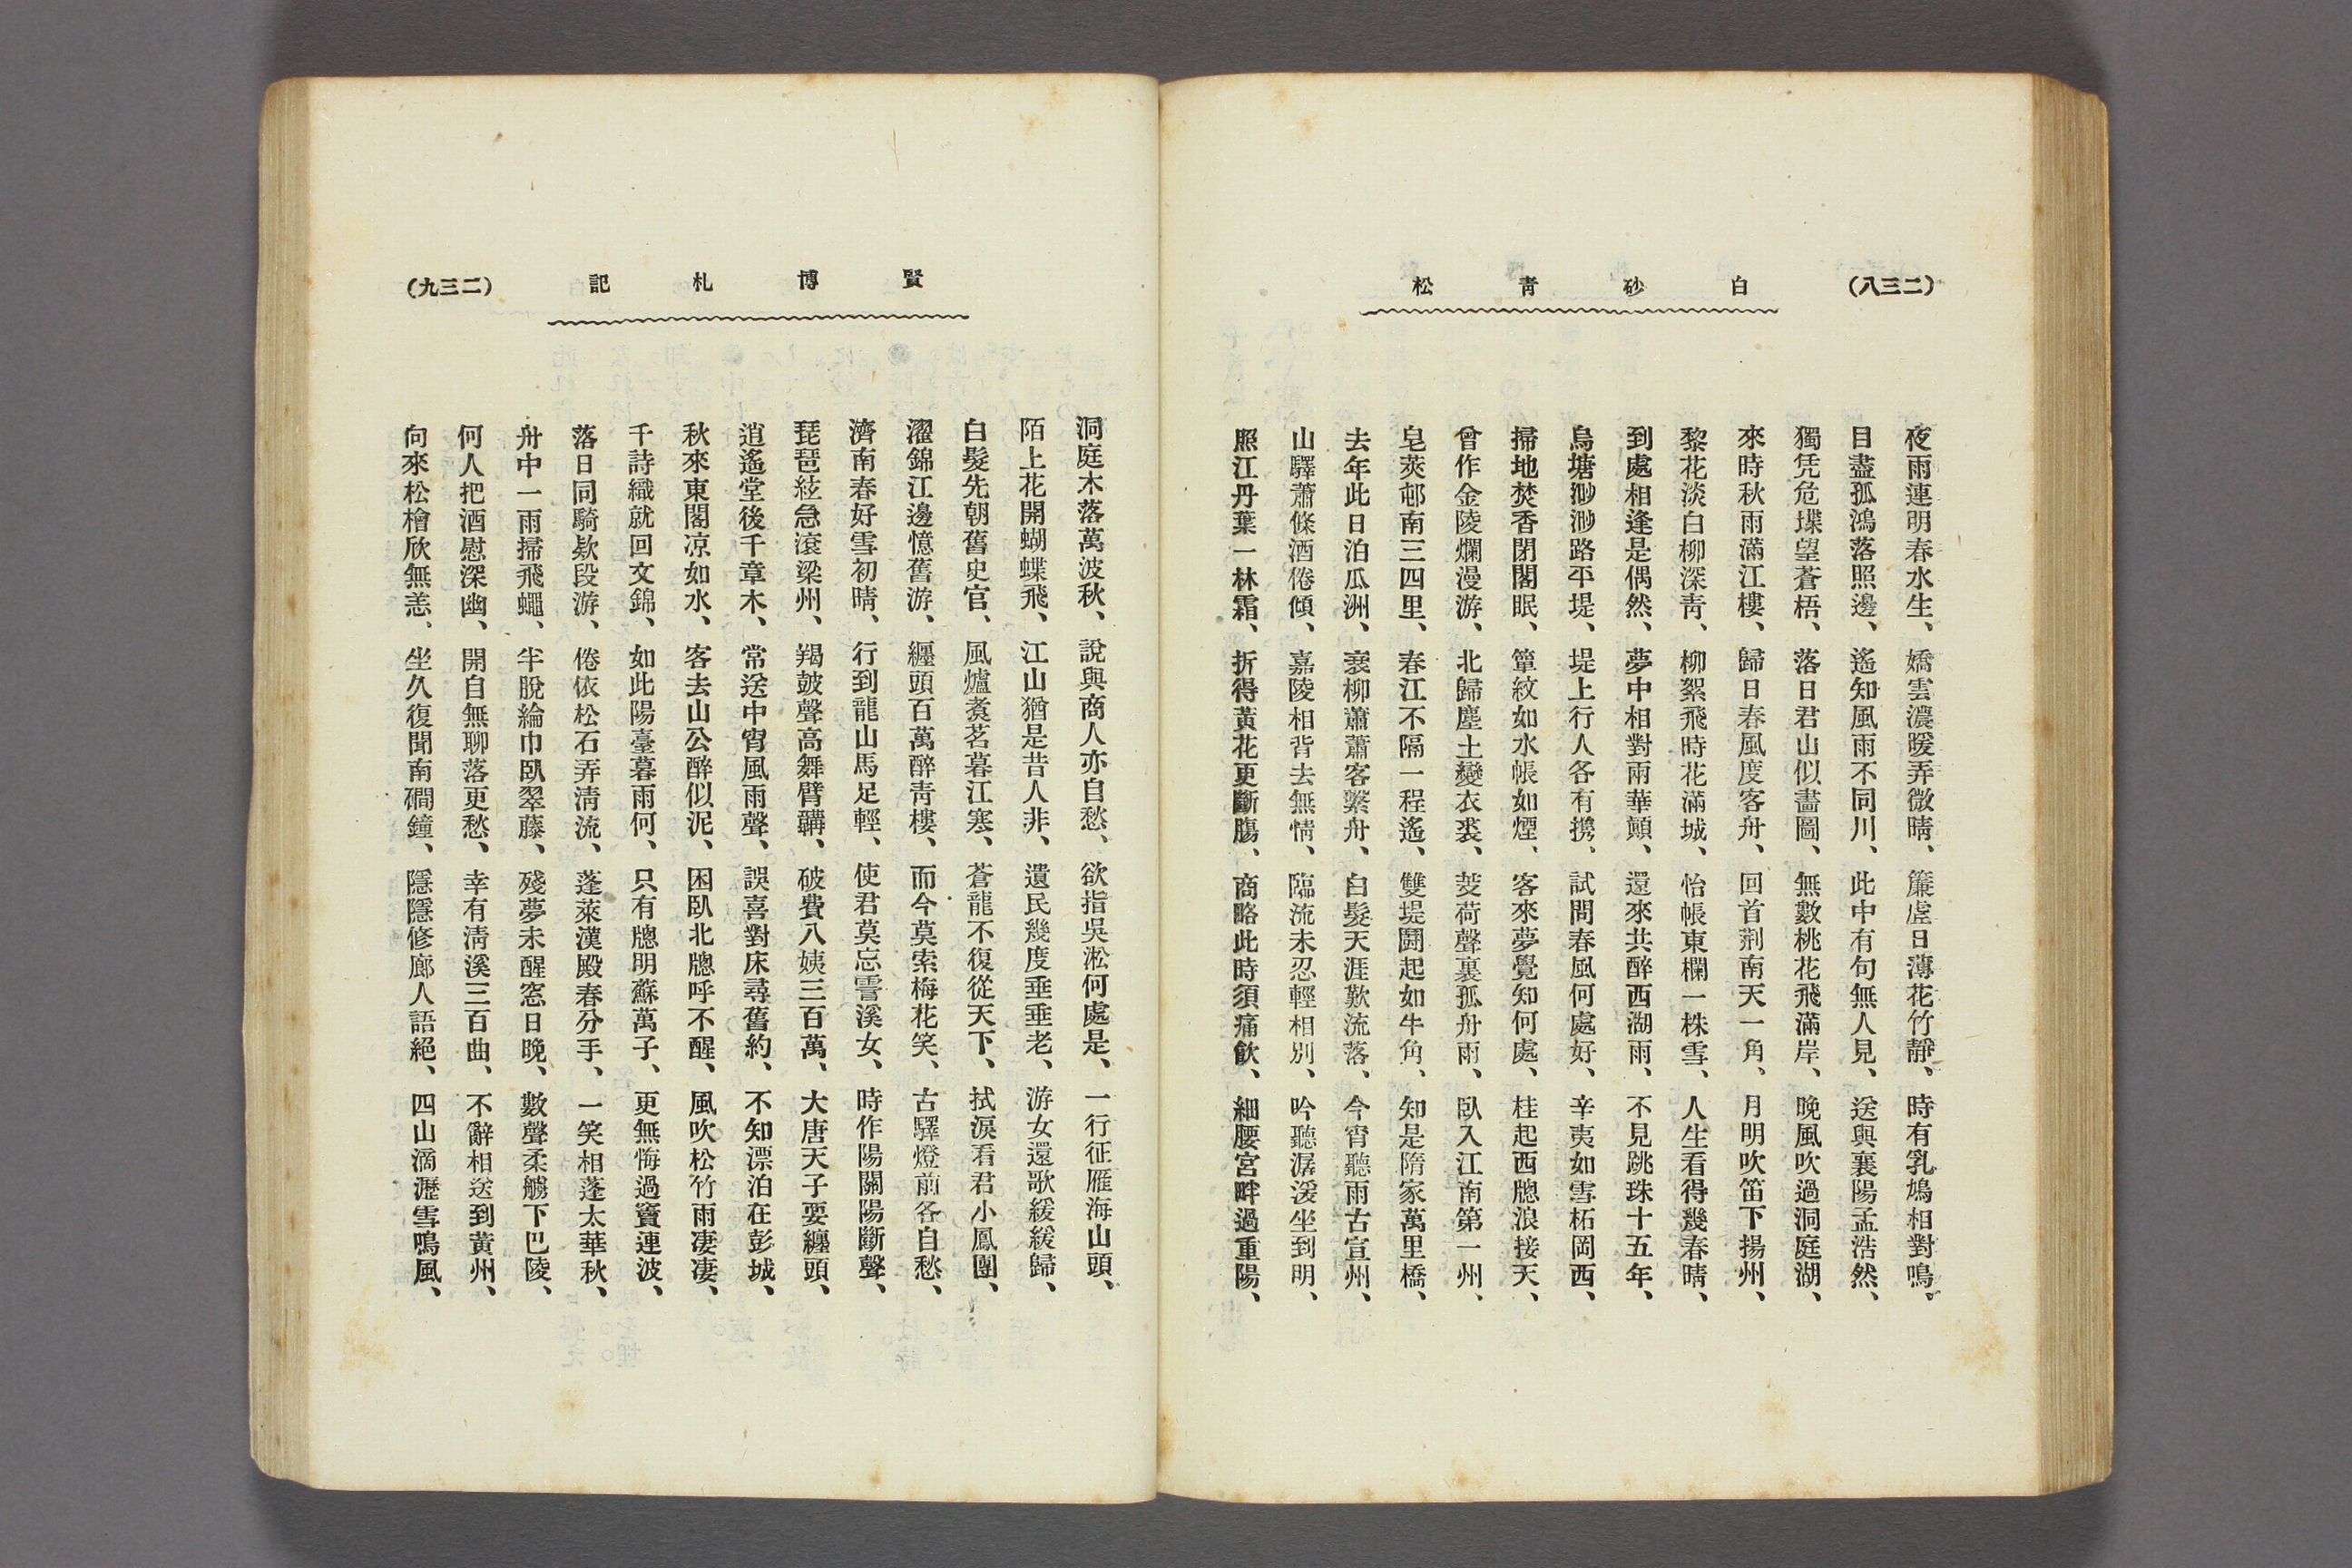 (二三八)
白砂青松
夜雨連明春水生、嬌雲濃暖弄微晴、簾虛日薄花竹靜、時有乳鳩相對鳴。
目盡孤鴻落照邊、遙知風雨不同川、此中有句無人見、送與襄陽孟浩然、
獨凭危堞望蒼梧、落日君山似畵圖、無數桃花飛滿岸、晩風吹過洞庭湖、
來時秋雨滿江樓、歸日春風度客舟、回首荆南天一角、月明吹笛下揚州、
黎花淡白柳深靑、柳絮飛時花滿城、怡帳東欄一株雪、人生看得幾春晴、
到處相逢是偶然、夢中相對雨華顚、還來共醉西湖雨、不見跳珠十五年、
烏塘渺渺路平堤、堤上行人各有携、試問春風何處好、辛夷如雪柘岡西、
掃地焚香閉閣眠、簟紋如水帳如煙、客來夢覺知何處、桂起西牕浪接天、
曾作金陵爛漫游、北歸塵土變衣裘、芰荷聲裏孤舟雨、臥入江南第一州、
皂莢邨南三四里、春江不隔一程遙、雙堤鬪起如牛角、知是隋家萬里橋、
去年此日泊瓜洲、衰柳蕭蕭客繫舟、白髮天涯歎流落、今宵聽雨古宣州、
山驛蕭條酒倦傾、嘉陵相背去無情、臨流未忍輕相別、吟聽潺湲坐到明、
照江丹葉一林霜、折得黃花更斷膓、商略此時須痛飮、細腰宮畔過重陽、
賢博札記
(二三九)
洞庭木落萬波秋、說與商人亦自愁、欲指吳淞何處是、一行征雁海山頭、
陌上花開蝴蝶飛、江山猶是昔人非、遺民幾度垂垂老、游女還歌緩緩歸、
白髮先朝舊史官、風爐煑茗暮江寒、蒼龍不復從天下、拭淚看君小鳳團、
濯錦江邊憶舊游、纏頭百萬醉靑樓、而今莫索梅花笑、古驛燈前各自愁、
濟南春好雪初晴、行到龍山馬足輕、使君莫忘霅溪女、時作陽關陽斷聲、
琵琶絃急滾梁州、羯鼓聲高舞臂韝、破費八姨三百萬、大唐天子要纏頭、
逍遙堂後千章木、常送中宵風雨聲、誤喜對床尋舊約、不知漂泊在彭城、
秋來東閣凉如水、客去山公醉似泥、困臥北牕呼不醒、風吹松竹雨凄凄、
千詩織就回文錦、如此陽臺暮雨何、只有牕明蘇萬子、更無悔過竇連波、
落日同騎欵段游、倦依松石弄淸流、蓬萊漢殿春分手、一笑相蓬太華秋、
舟中一雨掃飛蠅、半脫綸巾臥翠藤、殘夢未醒窓日晚、數聲柔艣下巴陵、
何人把酒慰深幽、開自無聊落更愁、幸有淸溪三百曲、不辭相送到黃州、
向來松檜欣無恙、坐久復聞南磵鐘、隱隱修廊人語絕、四山滴瀝雪鳴風、